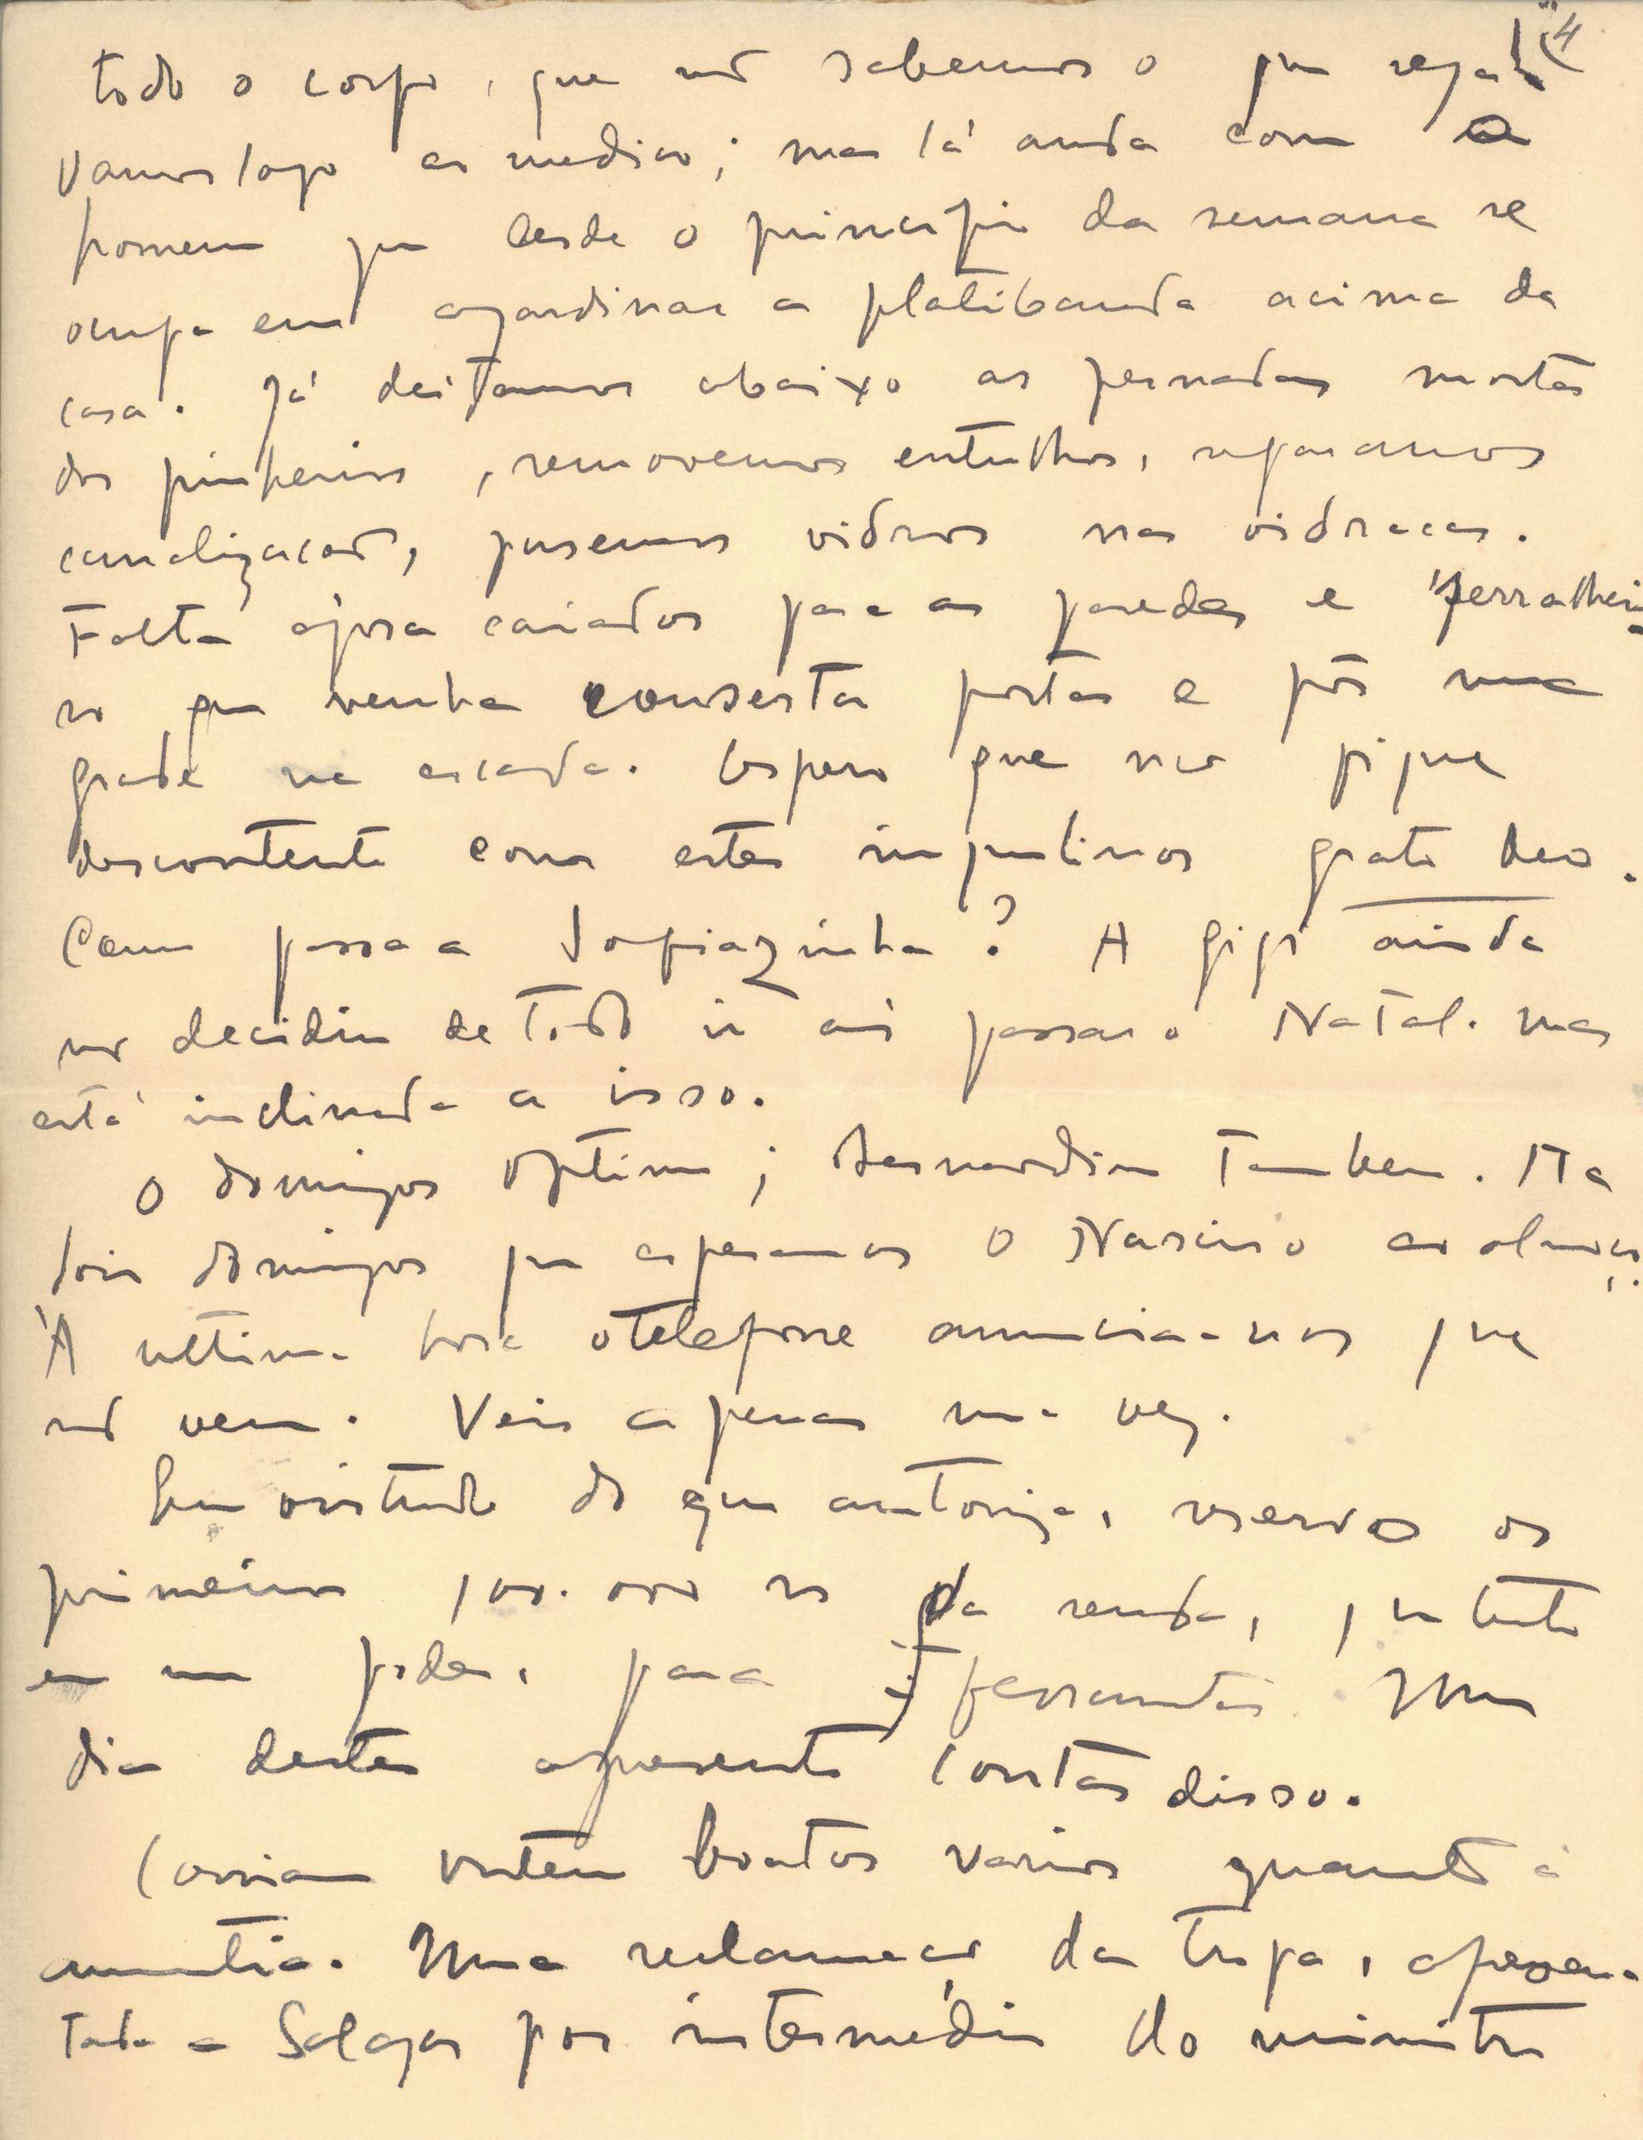 4
todo o corpo, que não sabemos o que seja.
Vamos logo ao medico; mas lá anda com o
homem que desde o principio da semana se
ocupa em ajardinar a platibanda acima da
casa. Já deitamos abaixo as pernadas mortas
dos pinheiros, removemos entulhos, reparamos
canalização, pusemos vidros nas vidraças.
Falta agora caiador para as paredes e serralhei-
ro que venha consertar portas e pôr uma
grade na escada. Espero que não fique
descontente com estes inquilinos grato deo.
Como passa a Sofiazinha? A Gigi ainda
não decidiu de todo ir aí passar o Natal. mas
está inclinada a isso.
O domingos optimo; Bernardino tambem. Ha
dois domingos que esperamos o Narciso ao almoço.
Á ultima hora o telefone anuncia-nos que
não vem. Veio apenas uma vez.
Em virtude do que autoriza, reservo os
primeiros 100.000 rs da renda, que tenho
em meu poder, para ferramentas. Um
dia destes apresento contas disso.
Corriam ontem boatos varios quanto á
amnistia. Uma reclamação da tropa, apresen-
tada a Salazar por intermedio do ministro